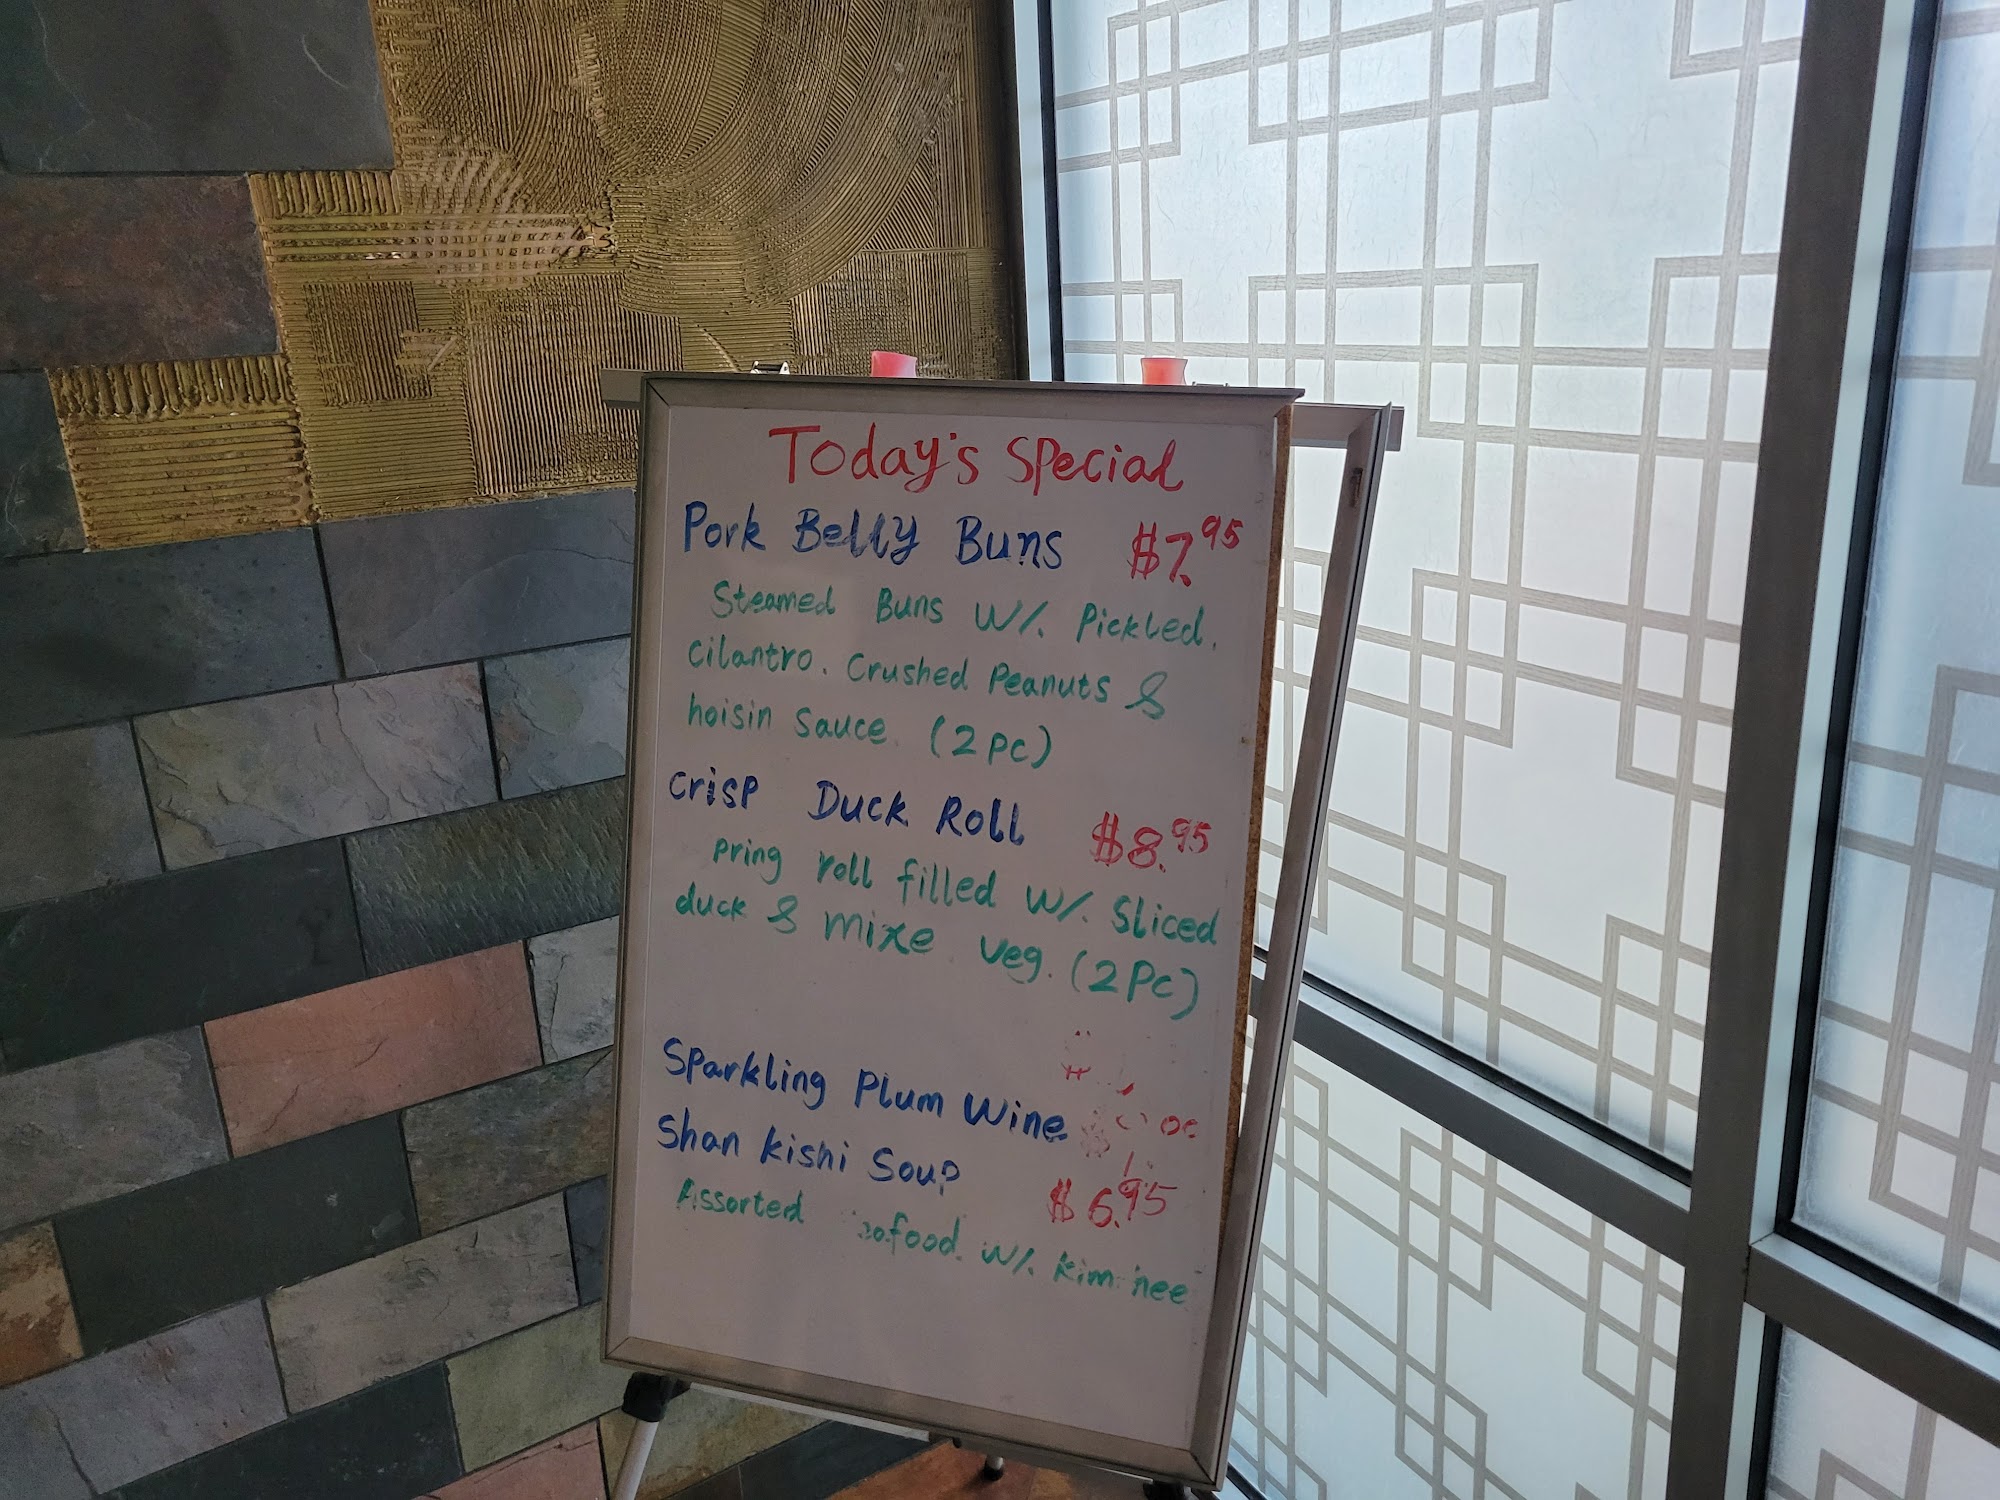 Today's Special
Pork Belly Buns $7.95
Steamed Buns W/. Pickled.
Cilantro. Crushed Peanuts &
hoisin Sauce. (2 PC)
Crisp Duck Roll $8.95
pring roll filled W/. Sliced
duck & mixe veg. (2PC)
Sparkling Plum Wine
Shan Kishi Soup $6.95
Assorted W/.